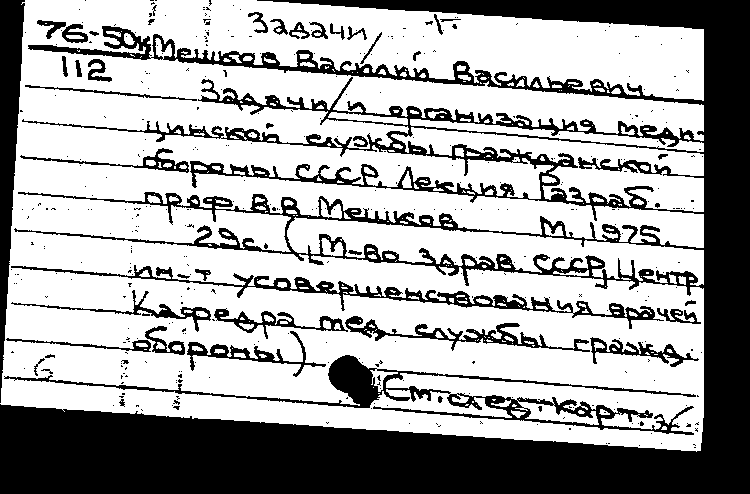 Задачи 1.
76-50к Мешков, Василий Васильевич.
112
Задачи и организация меди-
цинской службы гражданской
обороны СССР. Лекция. Разраб.
проф. В.В Мешков. М., 1975.
29с. (М-во здрав. СССР]. Центр.
ин-т усовершенствования врачей
Кафедра мед. службы гражд.
обороны)
6
См. след. карт.